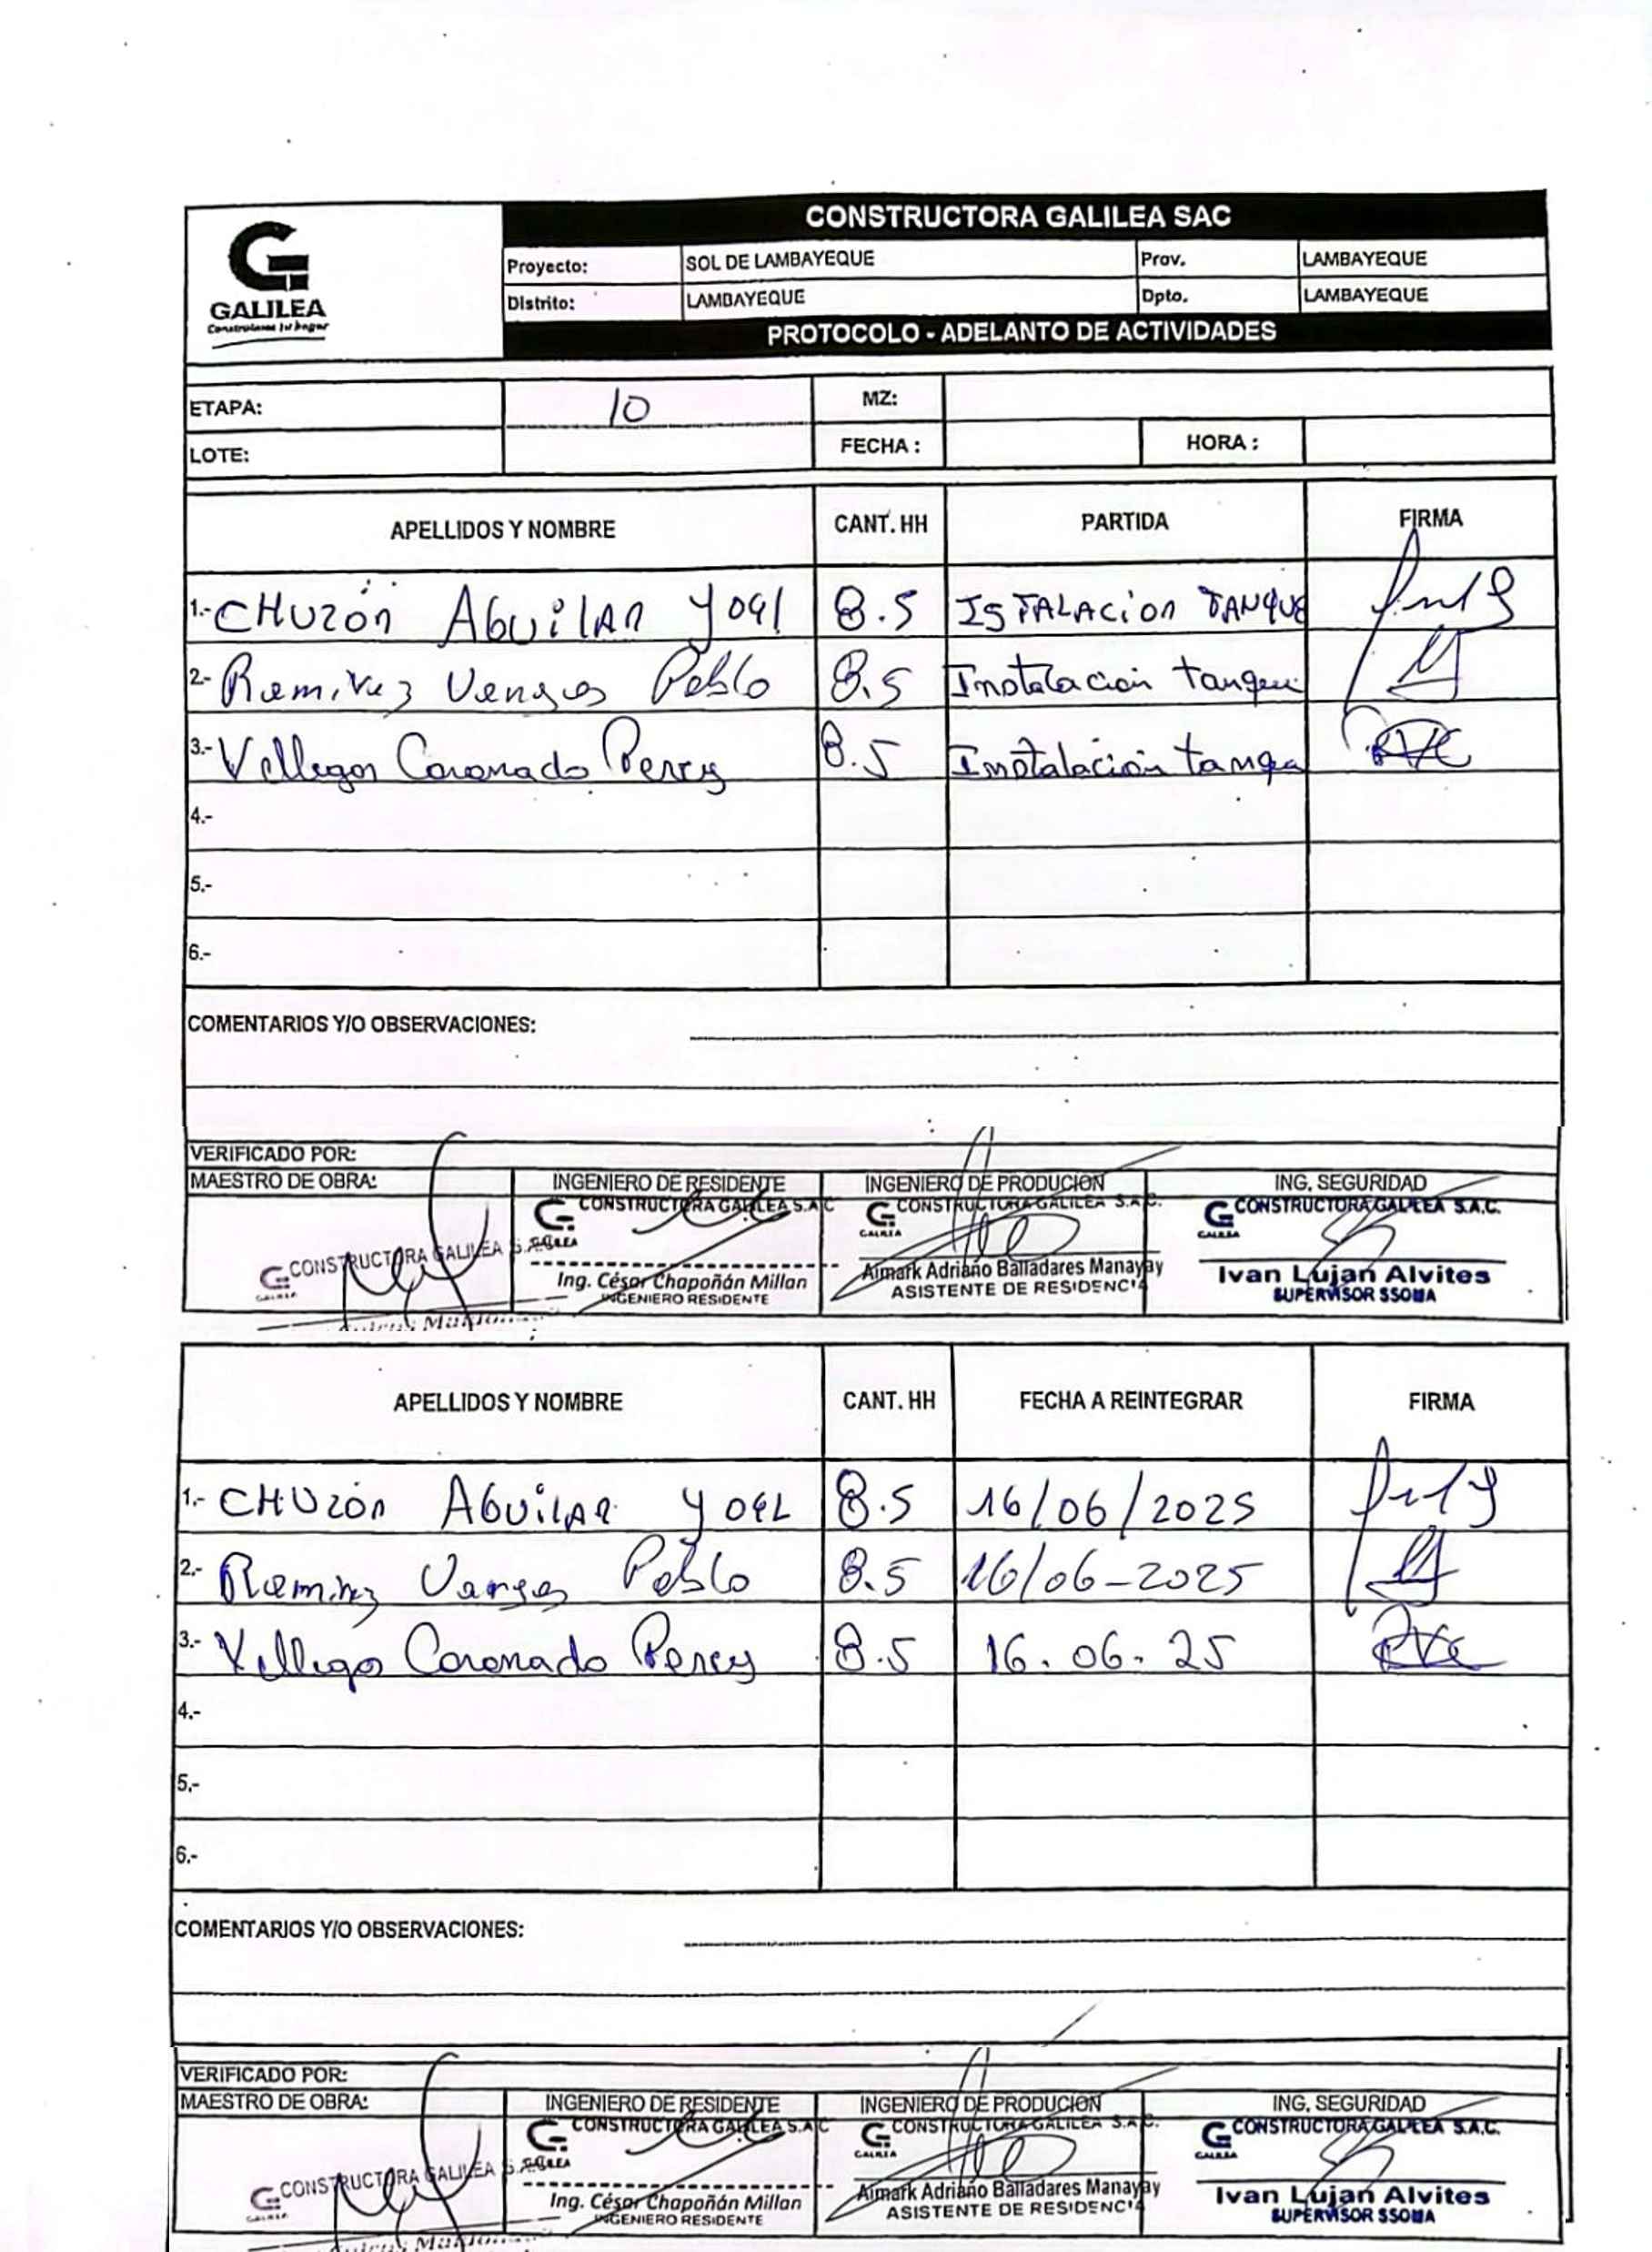 CONSTRUCTORA GALILEA SAC
GALILEA
Construimos tu hogar
Proyecto: SOL DE LAMBAYEQUE Prov. LAMBAYEQUE
Distrito: LAMBAYEQUE Dpto. LAMBAYEQUE
PROTOCOLO - ADELANTO DE ACTIVIDADES
ETAPA: 10 MZ:
LOTE: FECHA : HORA :
APELLIDOS Y NOMBRE CANT. HH PARTIDA FIRMA
1.- CHUZÓN AGUILAR YOEL 8.5 ISTALACION TANQUE
2.- Ramirez Vargas Pablo 8.5 Instalacion tanque
3.- Villegas Coronado Percy 8.5 Instalación tanque
4.-
5.-
6.-
COMENTARIOS Y/O OBSERVACIONES:
VERIFICADO POR:
MAESTRO DE OBRA: INGENIERO DE RESIDENTE INGENIERO DE PRODUCION ING. SEGURIDAD
CONSTRUCTORA GALILEA CONSTRUCTORA GALILEA S.A.C CONSTRUCTORA GALILEA S.A.C. CONSTRUCTORA GALILEA S.A.C.
Ing. César Chapoñán Millan Aimark Adriano Balladares Manayay Ivan Lujan Alvites
INGENIERO RESIDENTE ASISTENTE DE RESIDENCIA SUPERVISOR SSOMA
APELLIDOS Y NOMBRE CANT. HH FECHA A REINTEGRAR FIRMA
1.- CHUZÓN AGUILAR YOEL 8.5 16/06/2025
2.- Ramirez Vargas Pablo 8.5 16/06-2025
3.- Villegas Coronado Percy 8.5 16.06.25
4.-
5.-
6.-
COMENTARIOS Y/O OBSERVACIONES:
VERIFICADO POR:
MAESTRO DE OBRA: INGENIERO DE RESIDENTE INGENIERO DE PRODUCION ING. SEGURIDAD
CONSTRUCTORA GALILEA CONSTRUCTORA GALILEA S.A.C CONSTRUCTORA GALILEA S.A.C. CONSTRUCTORA GALILEA S.A.C.
Ing. César Chapoñán Millan Aimark Adriano Balladares Manayay Ivan Lujan Alvites
INGENIERO RESIDENTE ASISTENTE DE RESIDENCIA SUPERVISOR SSOMA